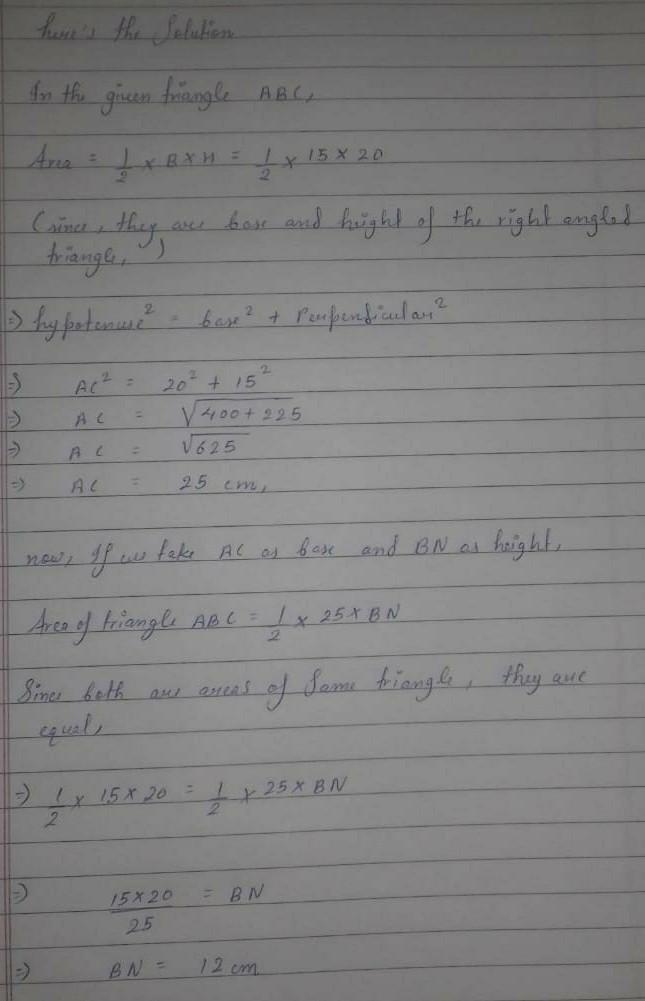 here's the Solution
In the given triangle ABC,
Area = 1/2 × B × H = 1/2 × 15 × 20
(since, they are base and height of the right angled
triangle, )
=> hypotenuse² = base² + Perpendicular²
=> AC² = 20² + 15²
=> AC = √400 + 225
=> AC = √625
=> AC = 25 cm,
now, If we take AC as base and BN as height,
Area of triangle ABC = 1/2 × 25 × BN
Since both are areas of Same triangle, they are
equal,
=> 1/2 × 15 × 20 = 1/2 × 25 × BN
=> 15×20/25 = BN
=> BN = 12 cm